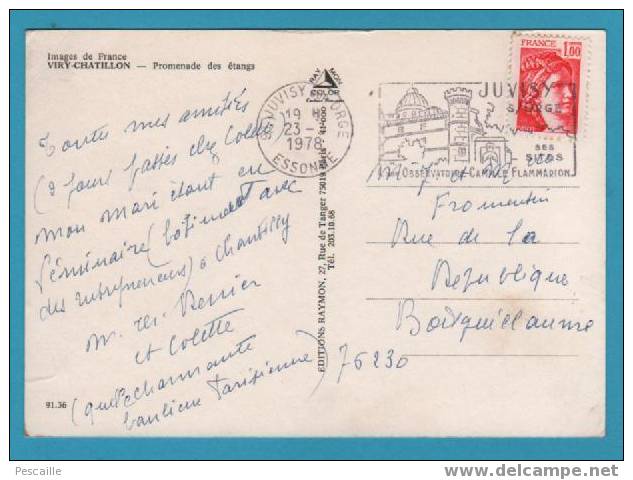 Images de France
VIRY-CHATILLON — Promenade des étangs
Toutes mes amitiés
(2 jours passés chez Colette
mon mari étant en
Séminaire (bâtiment avec
des entrepreneurs) à Chantilly
M. Th. Renier
et Colette
(quelle charmante
banlieue Parisienne)
91.36
RAY MON
COLOR
EDITIONS RAYMON, 27, Rue de Tanger 75019 Paris
Tél. 203.10.68
JUVISY ORGE
19 H
23 -
1978
ESSONNE
JUVISY
S/ORGE
SES
SITES
OBSERVATOIRE CAMILLE FLAMMARION
FRANCE 1,00
Fromentin
Rue de la
République
Boisguillaume
76230
Pescaille
www.delcampe.net